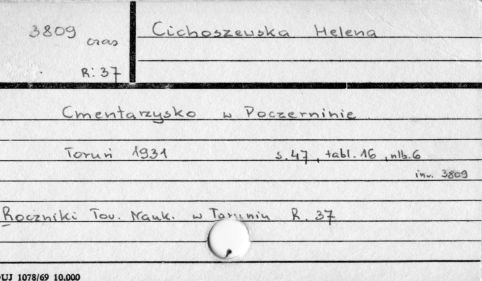 3809
czas
R: 37
Cichoszewska Helena
Cmentarzysko w Poczerninie
Toruń 1931 s. 47, tabl. 16, nlb. 6
inw. 3809
Roczniki Tow. Nauk. w Toruniu R. 37
UJ 1078/69 10.000